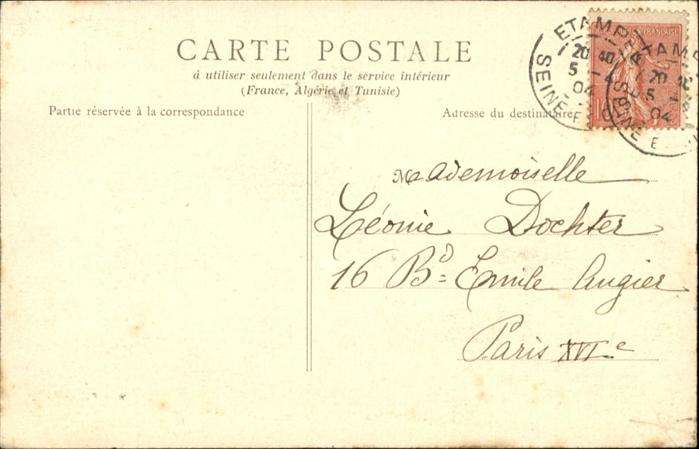 CARTE POSTALE
à utiliser seulement dans le service intérieur
(France, Algérie et Tunisie)
Partie réservée à la correspondance
Adresse du destinataire
ETAMPES
20 40
5 - 4
04
SEINE-ET-O
ETAMPES
20
5
04
SEINE E
Mademoiselle
Léonie Dochter
16 Bd Emile Augier
Paris XVIe